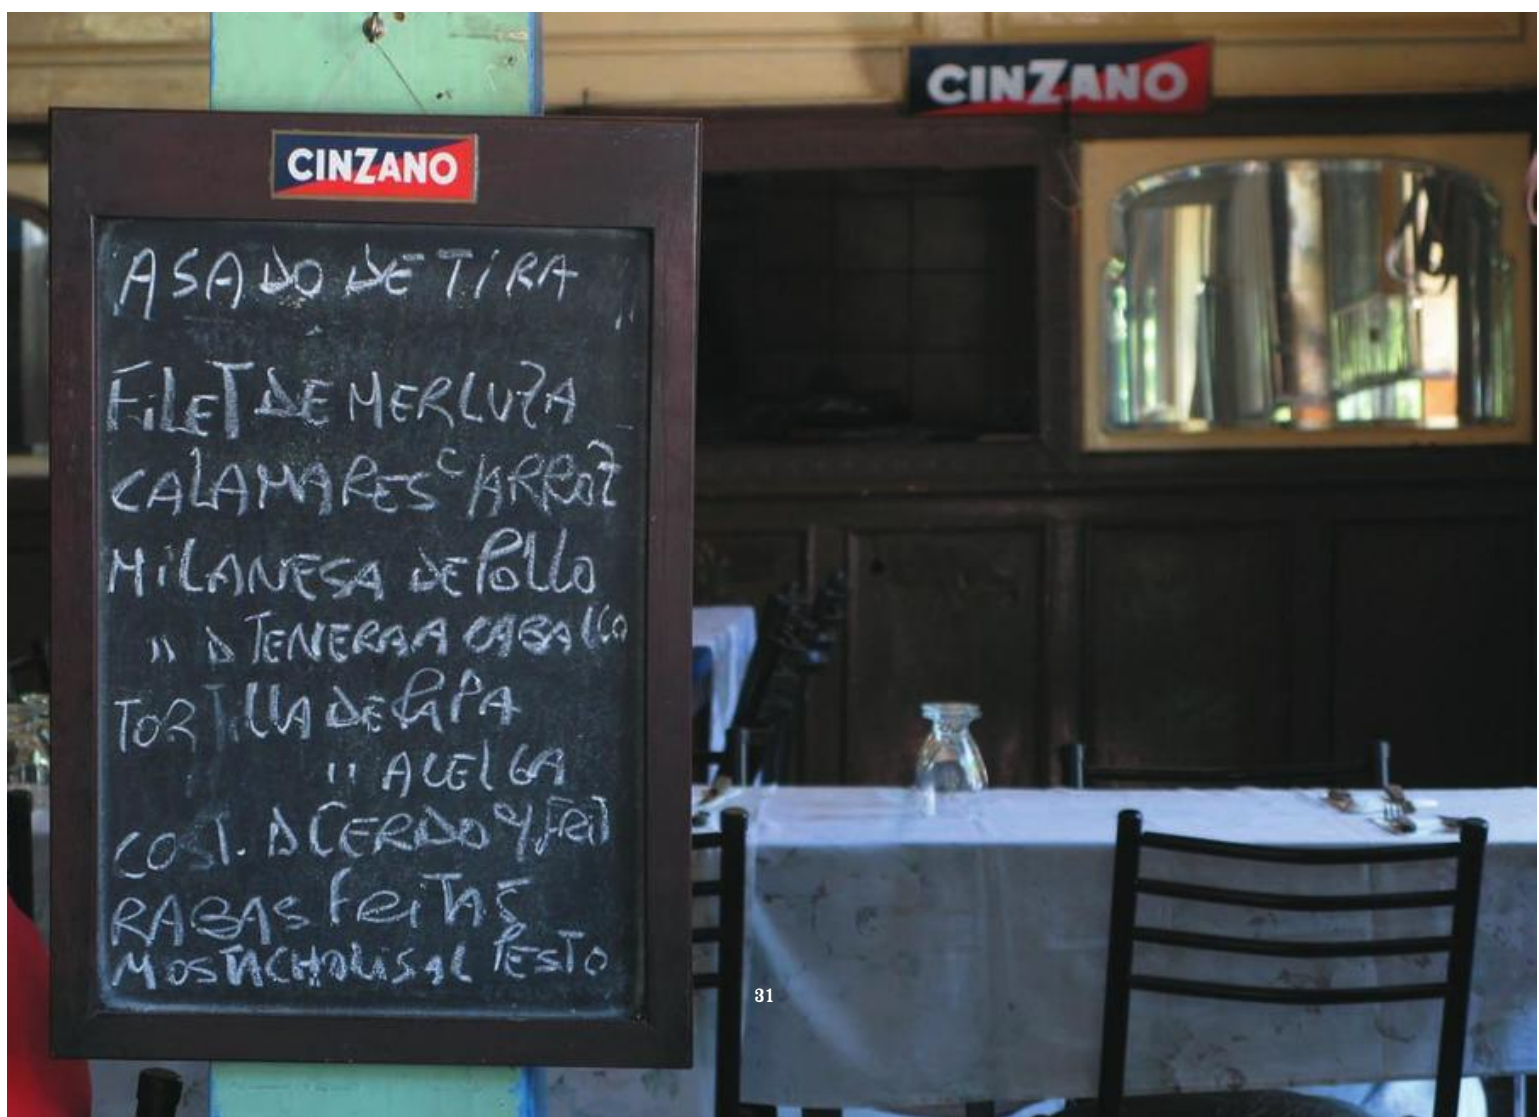 CINZANO
CINZANO
ASADO DE TIRA
FILET DE MERLUZA
CALAMARES C ARROZ
MILANESA DE POLLO
" D TENERA A CABALLO
TORTILLA DE PAPA
" ACELGA
COST. D CERDO
RABAS FRITAS
MOSTACHOLIS AL PESTO
31